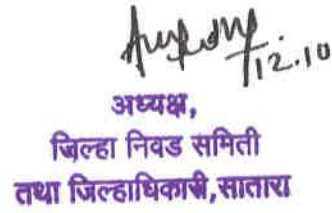 12.10
अध्यक्ष,
जिल्हा निवड समिती
तथा जिल्हाधिकारी,सातारा